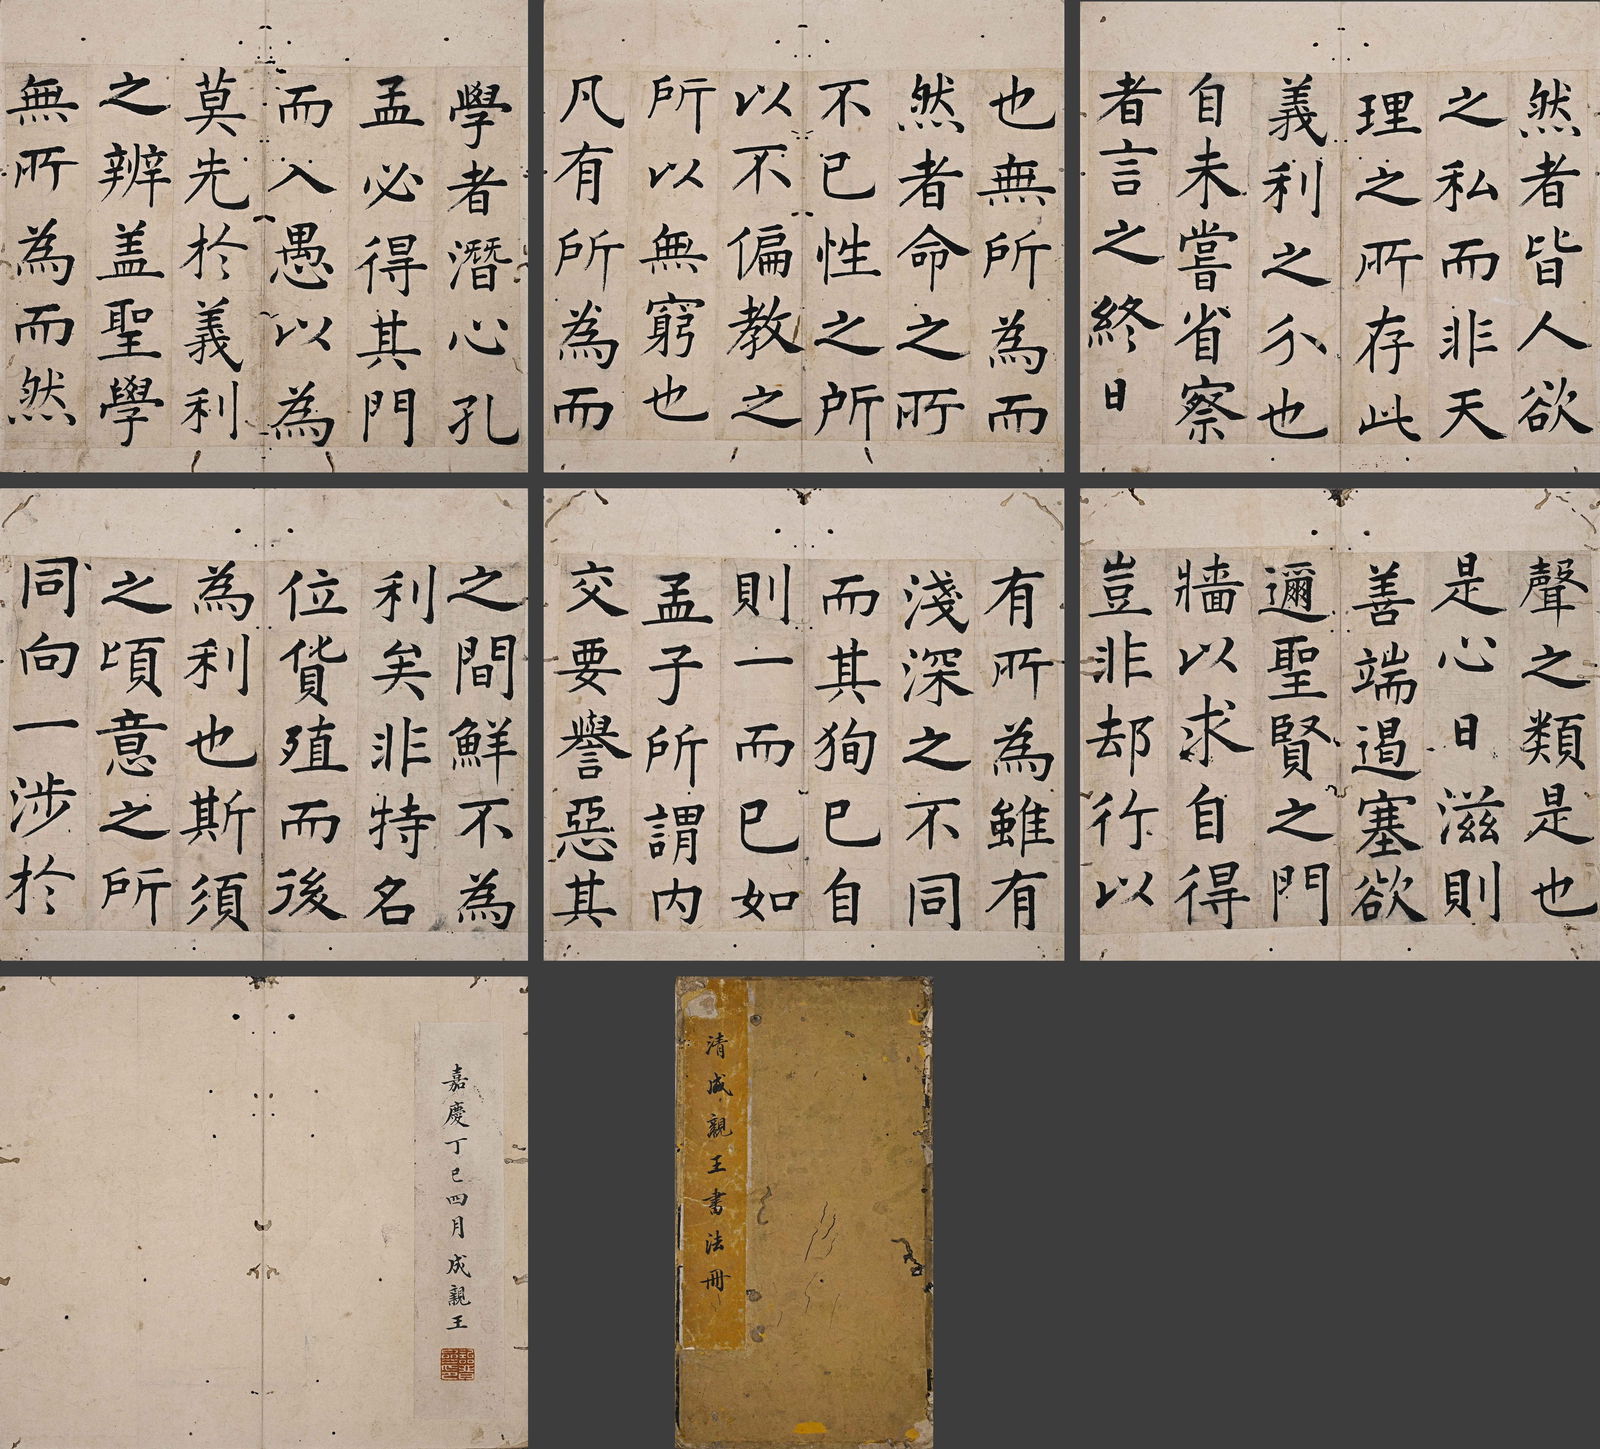 學者潛心孔
孟必得其門
而入愚以為
莫先於義利
之辨盖聖學
無所為而然
也無所為而
然者命之所
不已性之所
以不偏教之
所以無窮也
凡有所為而
然者皆人欲
之私而非天
理之所存此
義利之分也
自未嘗省察
者言之終日
之間鮮不為
利矣非特名
位貨殖而後
為利也斯須
之頃意之所
同向一涉於
有所為雖有
淺深之不同
而其狥己自
則一而已如
孟子所謂内
交要譽惡其
聲之類是也
是心日滋則
善端遏塞欲
邇聖賢之門
牆以求自得
豈非却行以
嘉慶丁巳四月成親王
清成親王書法冊